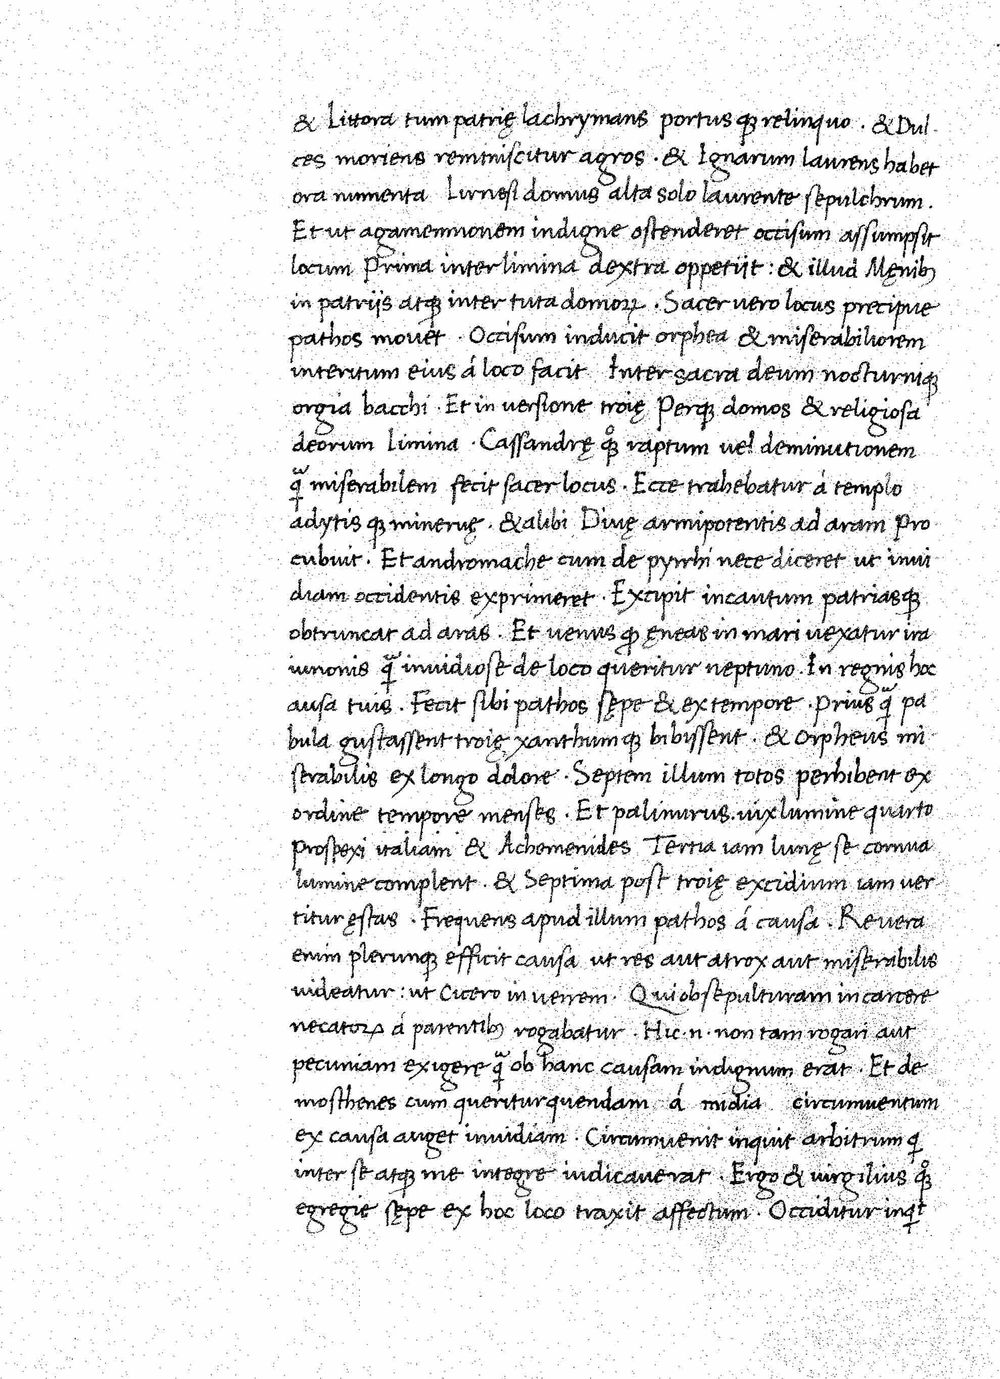 & Littora tum patrię lachrymans portus qꝫ relinquo . & Dul
ces moriens reminiscitur agros . & Ignarum laurens habet
ora mimenta Lirnesi domus alta solo laurente sepulchrum .
Et ut agamemnonem indigne ostenderet occisum assumpsit
locum Prima inter limina dextra oppetijt : & illud Męnibꝫ
in patrijs atqꝫ inter tuta domoꝝ . Sacer uero locus precipue
pathos mouet . Occisum inducit orphea & miserabiliorem
interitum eius á loco facit Inter sacra deum nocturniqꝫ
orgia bacchi . Et in uersione troię Perqꝫ domos & religiosa
deorum limina . Cassandrę qꝫͦ raptum uel deminutionem
qᷓ miserabilem fecit sacer locus . Ecce trahebatur á templo
adytis qꝫ mineruę . & alibi Diuę armipotentis ad aram Pro
cubuit . Et andromache cum de pyrrhi nece diceret ut inui
diam occidentis exprimeret . Excipit incautum patriasqꝫ
obtruncat ad aras . Et uenus ꝙ ęneas in mari uexatur ira
iunonis qᷓ inuidiose de loco queritur neptuno . In regnis hoc
ausa tuis . Fecit sibi pathos sępe & ex tempore . Prius qᷓ pa
bula gustassent troię xanthumqꝫ bibissent . & Orpheus mi
serabilis ex longo dolore . Septem illum totos perhibent ex
ordine tempore menses . Et palinurus . uix lumine quarto
prospexi italiam & Achemenides Tertia iam lunę se cornua
lumine complent . & Septima post troię excidium iam uer
titur ęstas . Frequens apud illum pathos á causa . Reuera
enim plerunqꝫ efficit causa ut res aut atrox aut miserabilis
uideatur : ut Cicero in uerrem . Qui ob sepulturam in carcere
necatoꝝ á parentibꝫ rogabatur . Hic . n . non tam rogari aut
pecuniam exigere qᷓ ob hanc causam indignum erat . Et de
mosthenes cum queritur quendam á midia circumuentum
ex causa auget inuidiam . Circumuenit inquit arbitrum q
inter se atqꝫ me integre iudicauerat . Ergo & uirgilius qꝫͦ
egregie sępe ex hoc loco traxit affectum . Occiditur inqᵗ